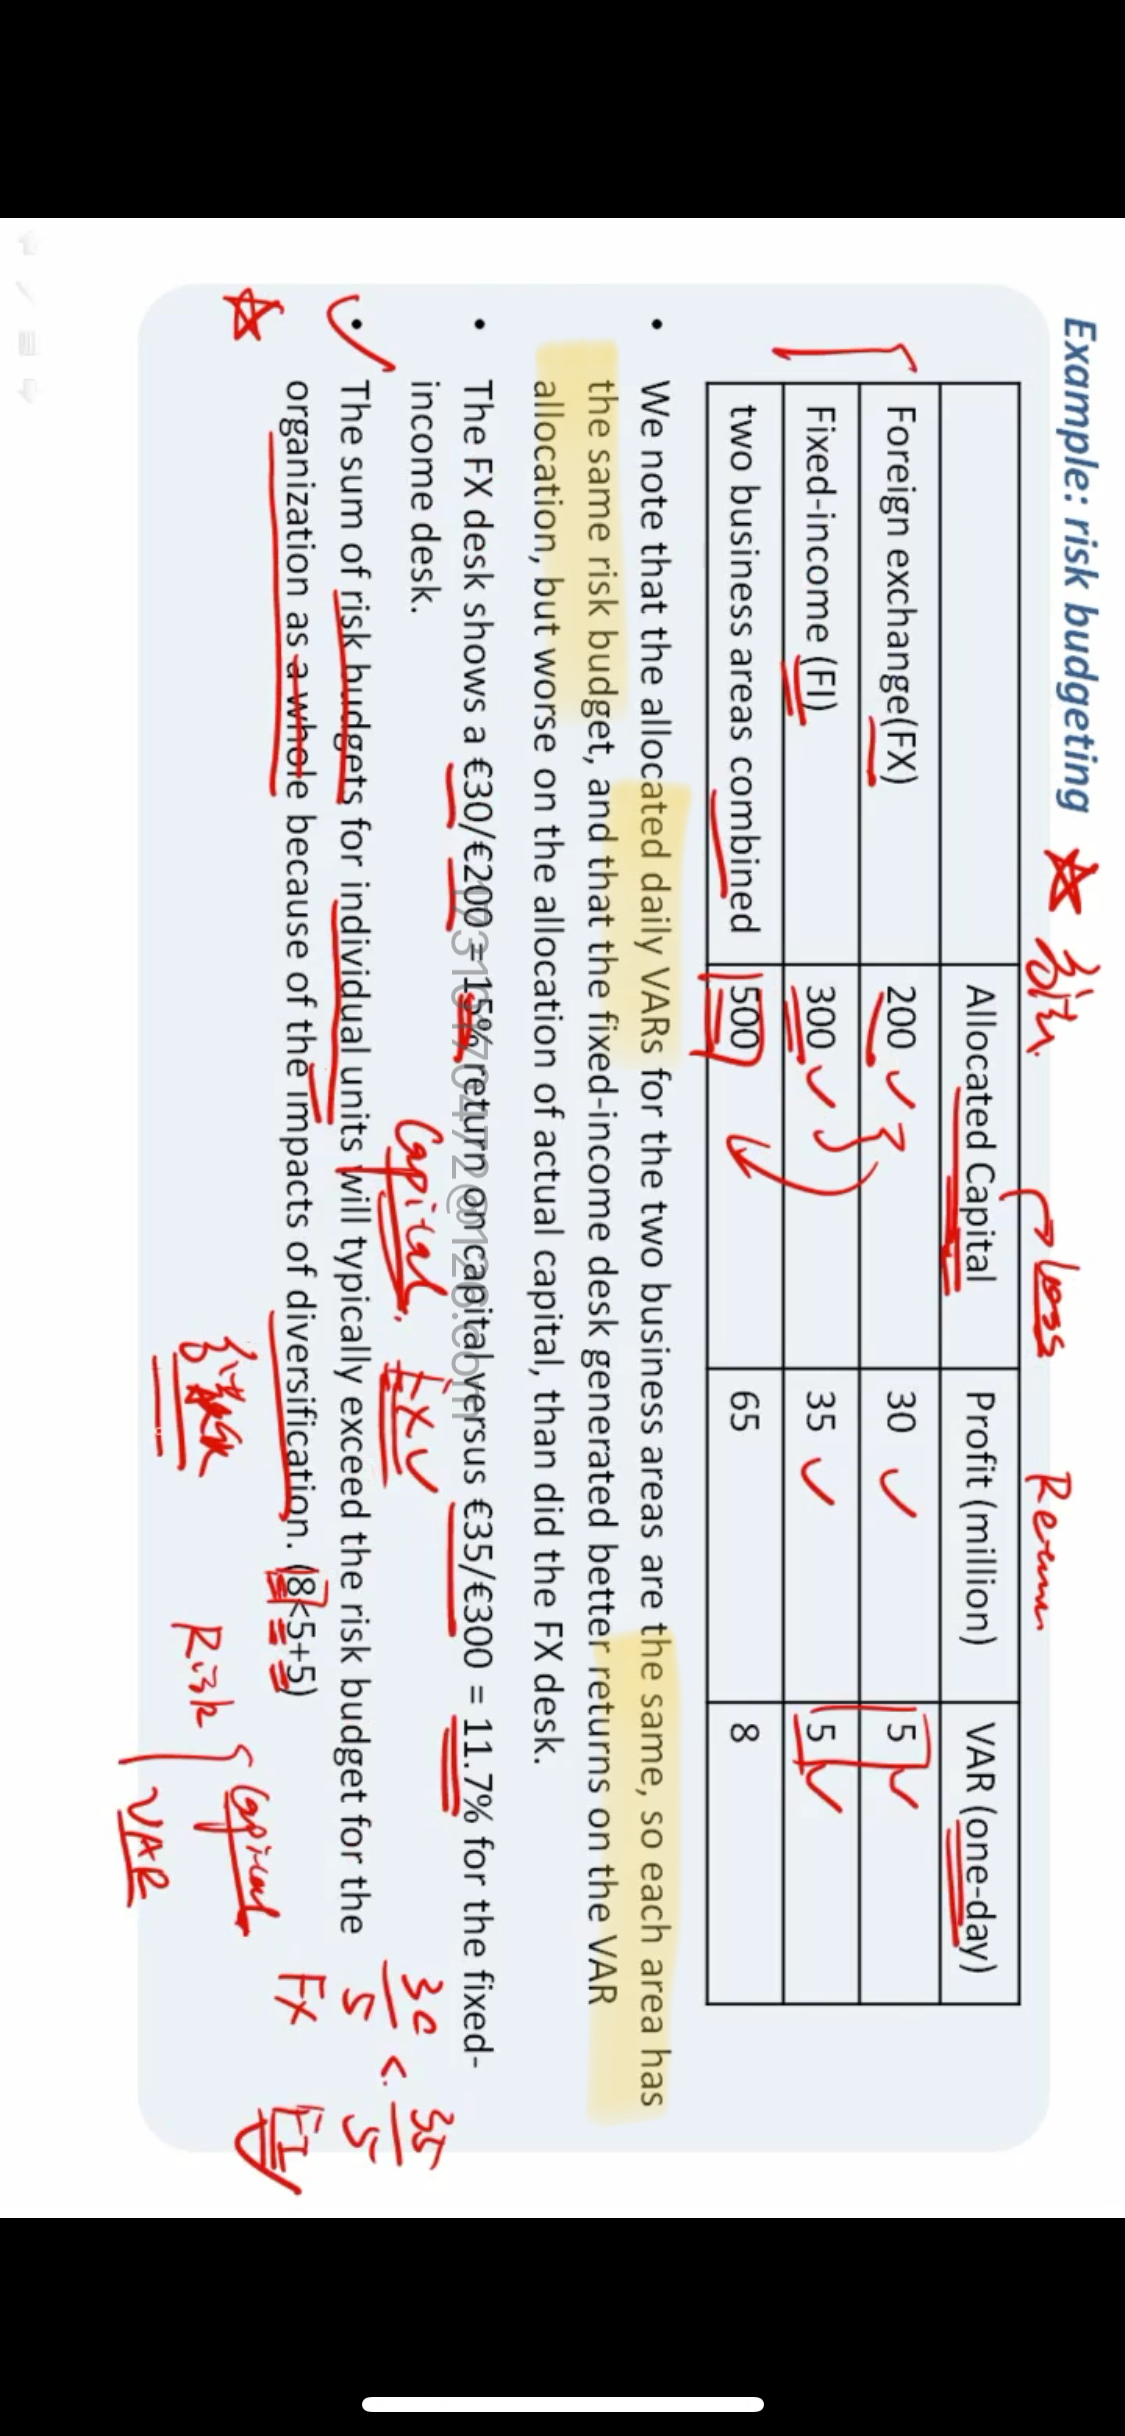 Example: risk budgeting
Loss
Return
Allocated Capital Profit (million) VAR (one-day)
Foreign exchange(FX) 200 30 5
Fixed-income (FI) 300 35 5
two business areas combined 500 65 8
• We note that the allocated daily VARs for the two business areas are the same, so each area has
the same risk budget, and that the fixed-income desk generated better returns on the VAR
allocation, but worse on the allocation of actual capital, than did the FX desk.
• The FX desk shows a €30/€200 = 15% return on capital versus €35/€300 = 11.7% for the fixed-
income desk.
Capital, FX
30/5 < 35/5
FX FI
• The sum of risk budgets for individual units will typically exceed the risk budget for the
organization as a whole because of the impacts of diversification. (8<5+5)
Risk
Capital
VAR